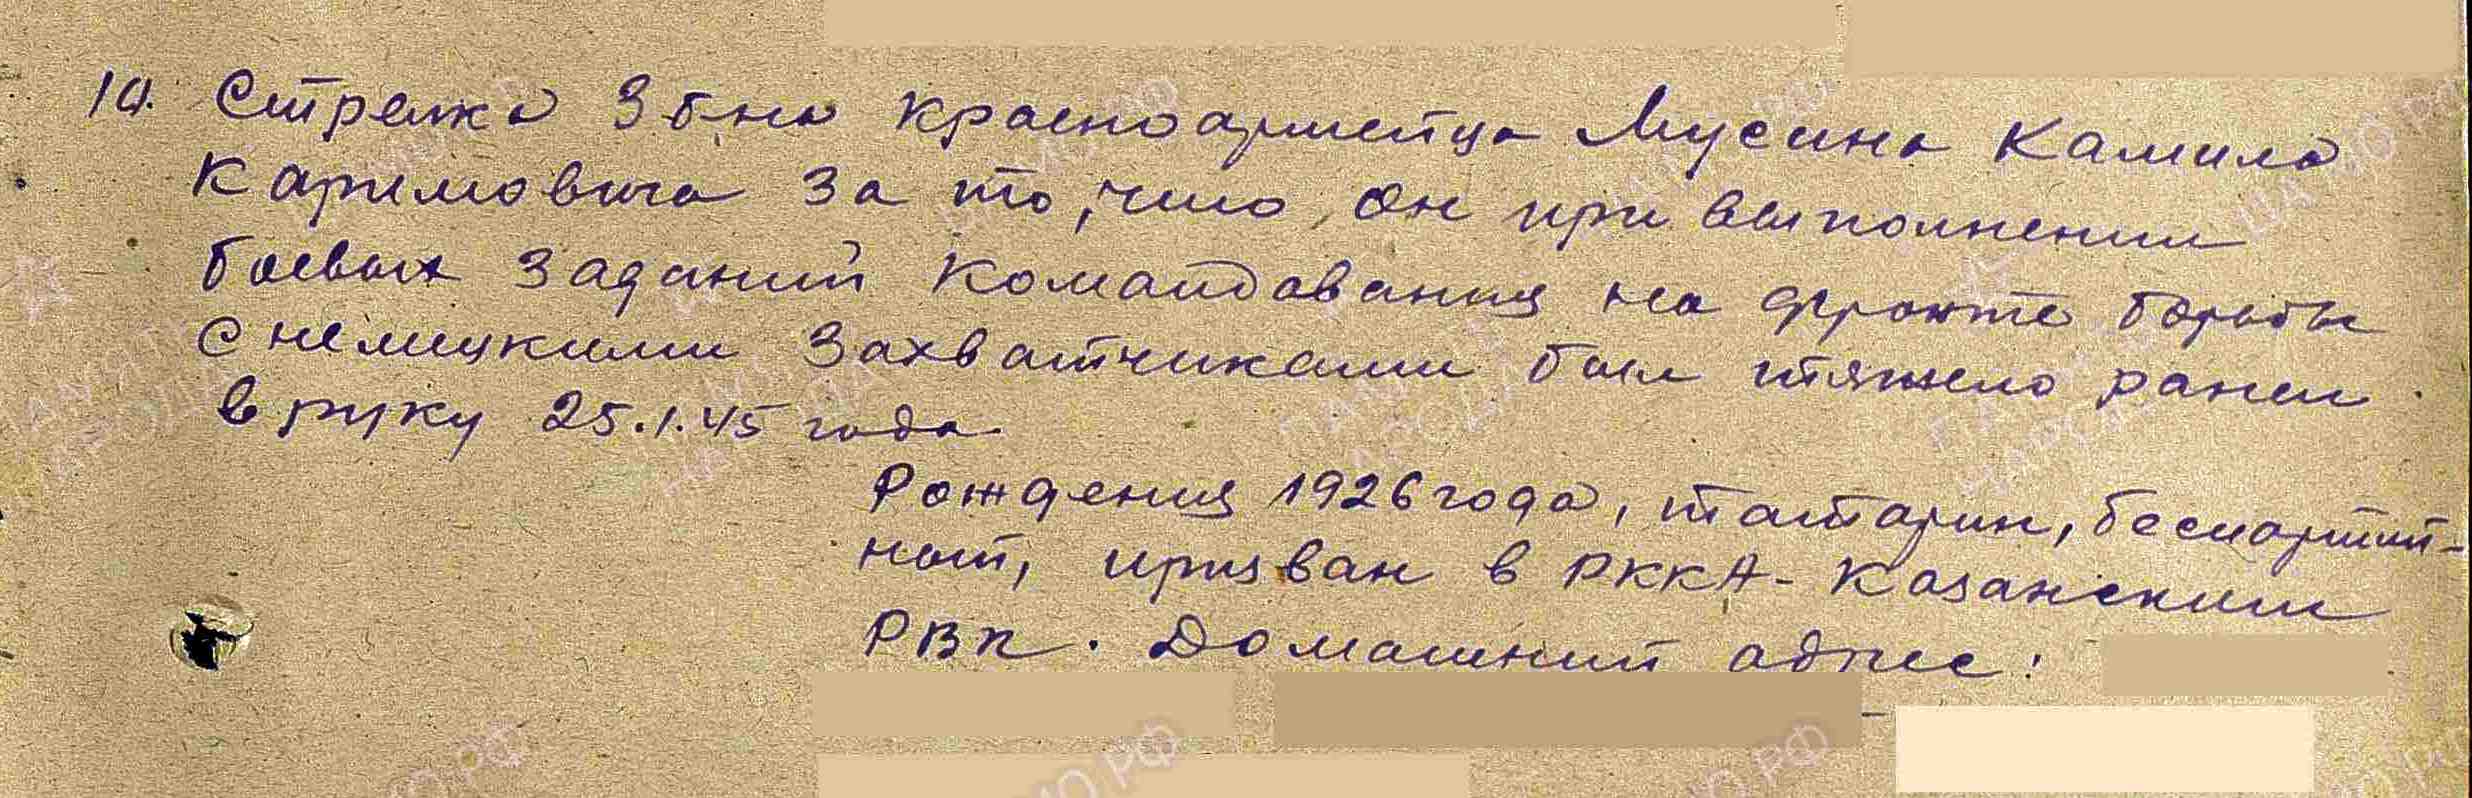 10. Стрелка 3 б-на красноармейца Мусина Камила
Каримовича за то, что он при выполнении
боевых заданий командования на фронте борьбы
с немецкими захватчиками был тяжело ранен
в руку 25.1.45 года
Рождения 1926 года, татарин, беспартий-
ный, призван в РККА - Казанским
РВК. Домашний адрес: